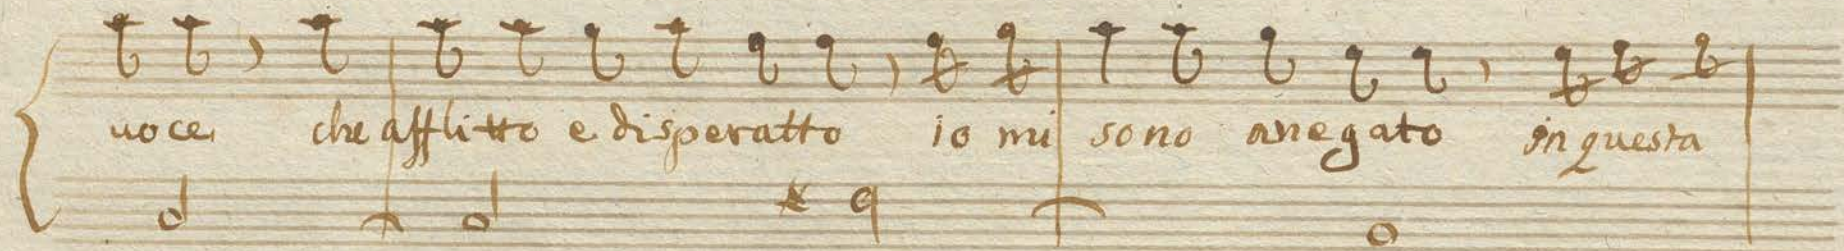 uoce che afflitto e disperatto io mi sono anegato in questa